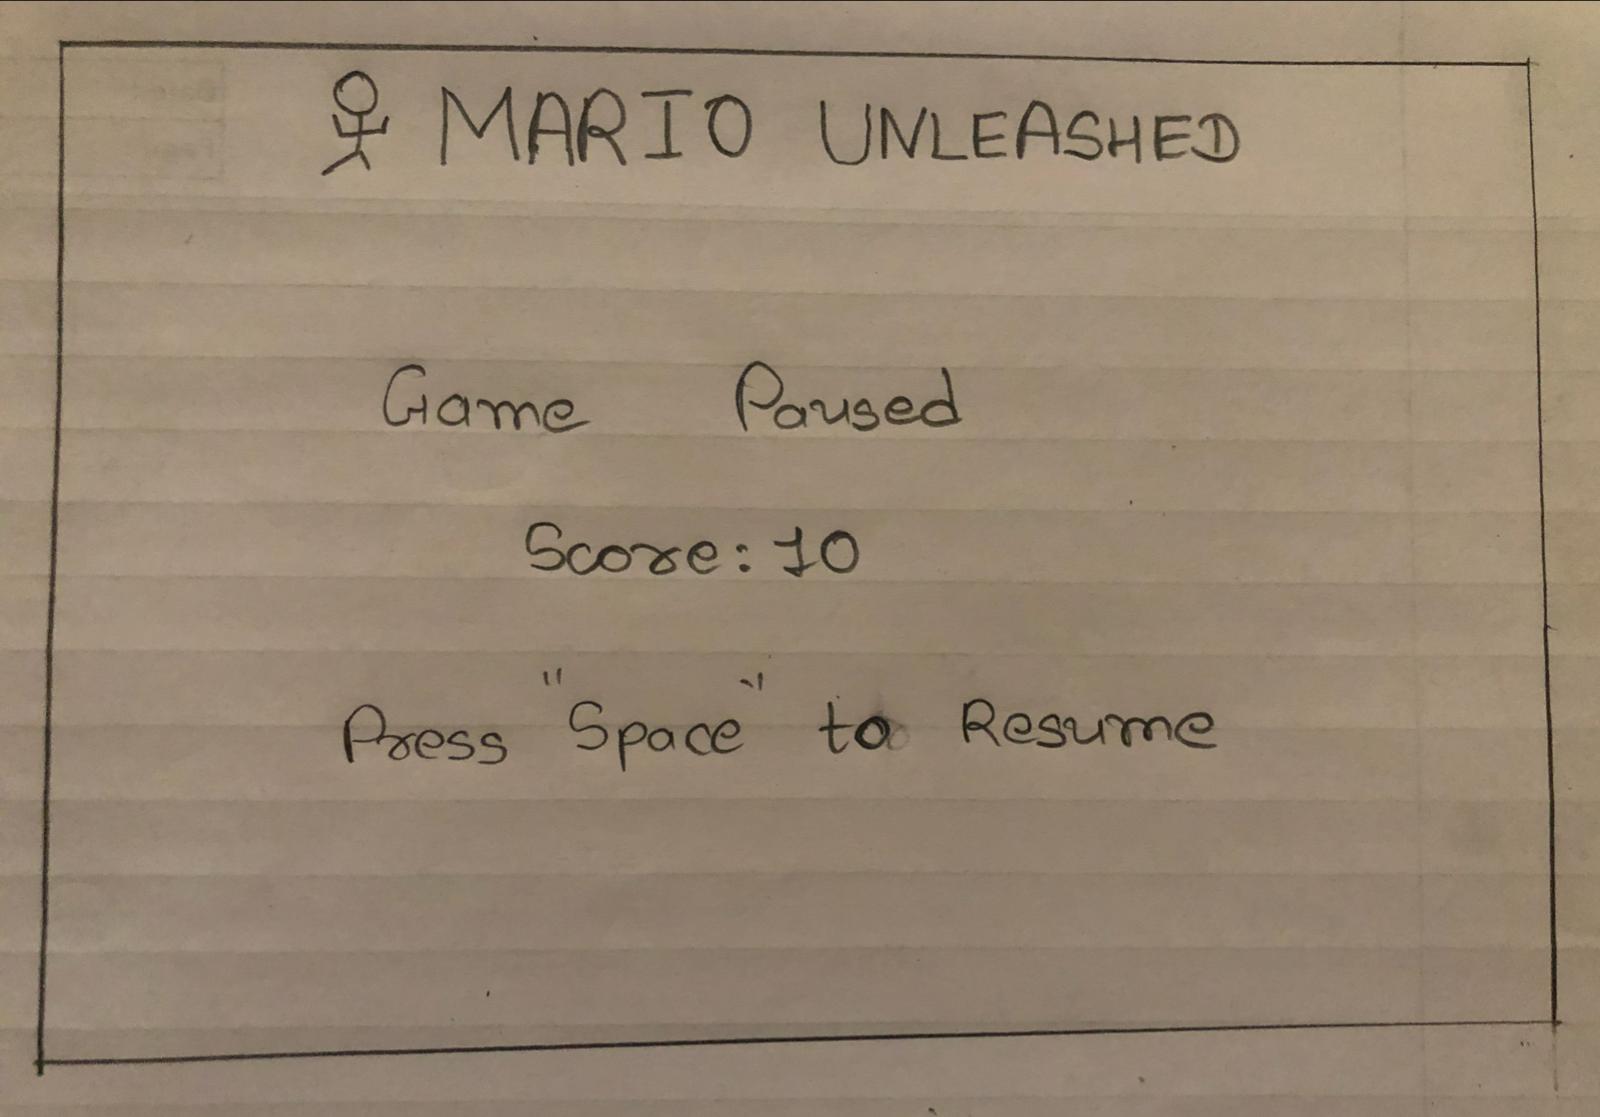 MARIO UNLEASHED
Game Paused
Score: 10
Press "Space" to Resume